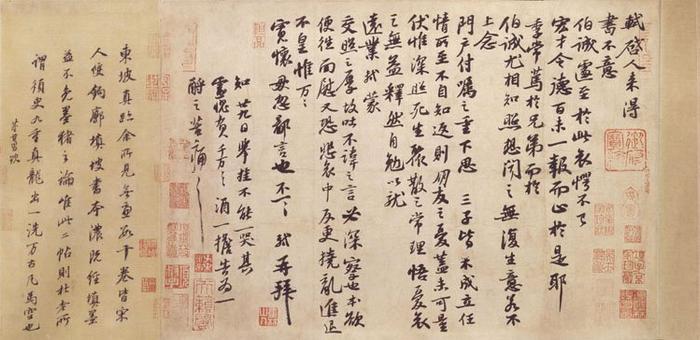 軾啟人來得
書不意
伯誠遽至於此哀愕不已
宏才令德百未一報而止於是耶
季常篤於兄弟而於
伯誠尤相知照想聞之無復生意若不
上念
門戶付囑之重下思三子皆不成立任
情所至不自知返則朋友之憂蓋未可量
伏惟深照死生聚散之常理悟憂哀
之無益釋然自勉以就
遠業軾蒙
交照之厚故吐不諱之言必深察也本欲
便往面慰又恐悲哀中反更撓亂進退
不皇惟萬萬
寬懷毋忽鄙言也不一一軾再拜
知廿九日舉掛不能一哭其
靈愧負千萬千萬酒一擔告為一
酹之苦痛苦痛
東坡真跡余所見無慮數十卷皆宋
人雙鉤廓填坡書本濃既經填墨
益不免墨豬之論唯此二帖則杜老所
謂須臾九重真龍出一洗万古凡馬空也
董其昌跋